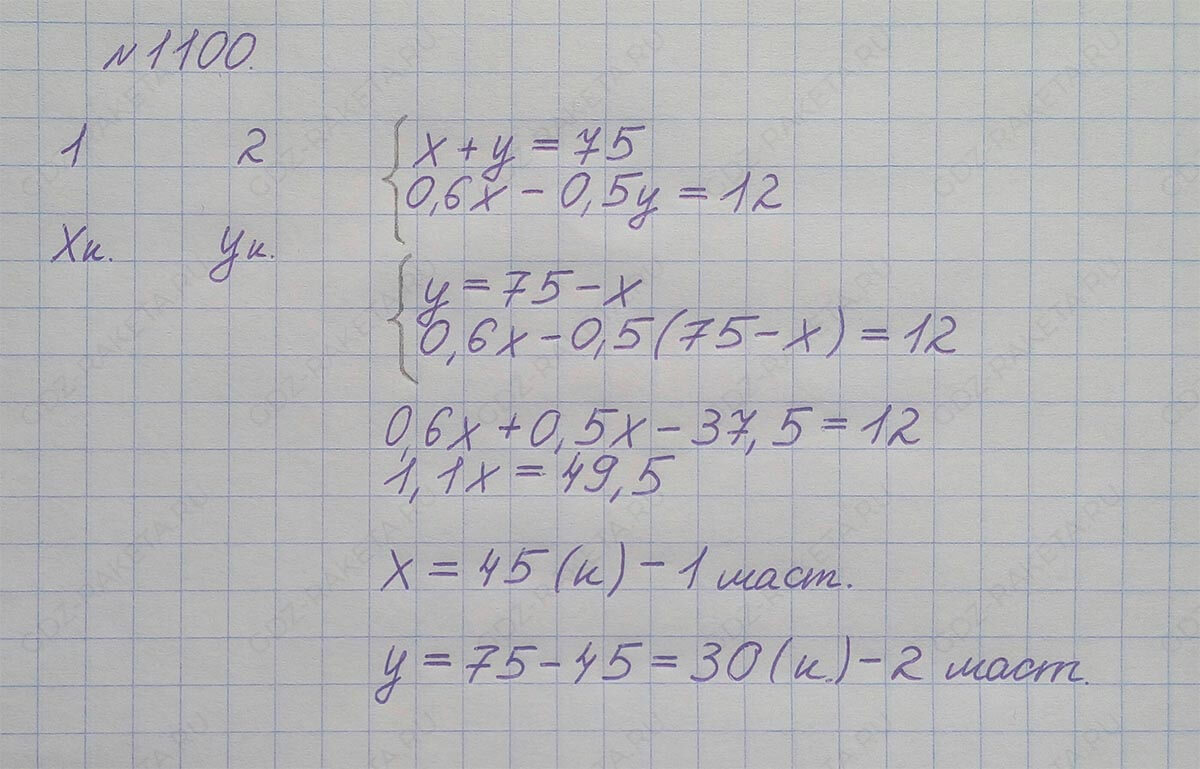 №1100.
1 2
xк. yк.
x + y = 75
0,6x - 0,5y = 12
y = 75 - x
0,6x - 0,5(75 - x) = 12
0,6x + 0,5x - 37,5 = 12
1,1x = 49,5
x = 45 (к) - 1 маст.
y = 75 - 45 = 30 (к.) - 2 маст.
GDZ-RAKETA.RU